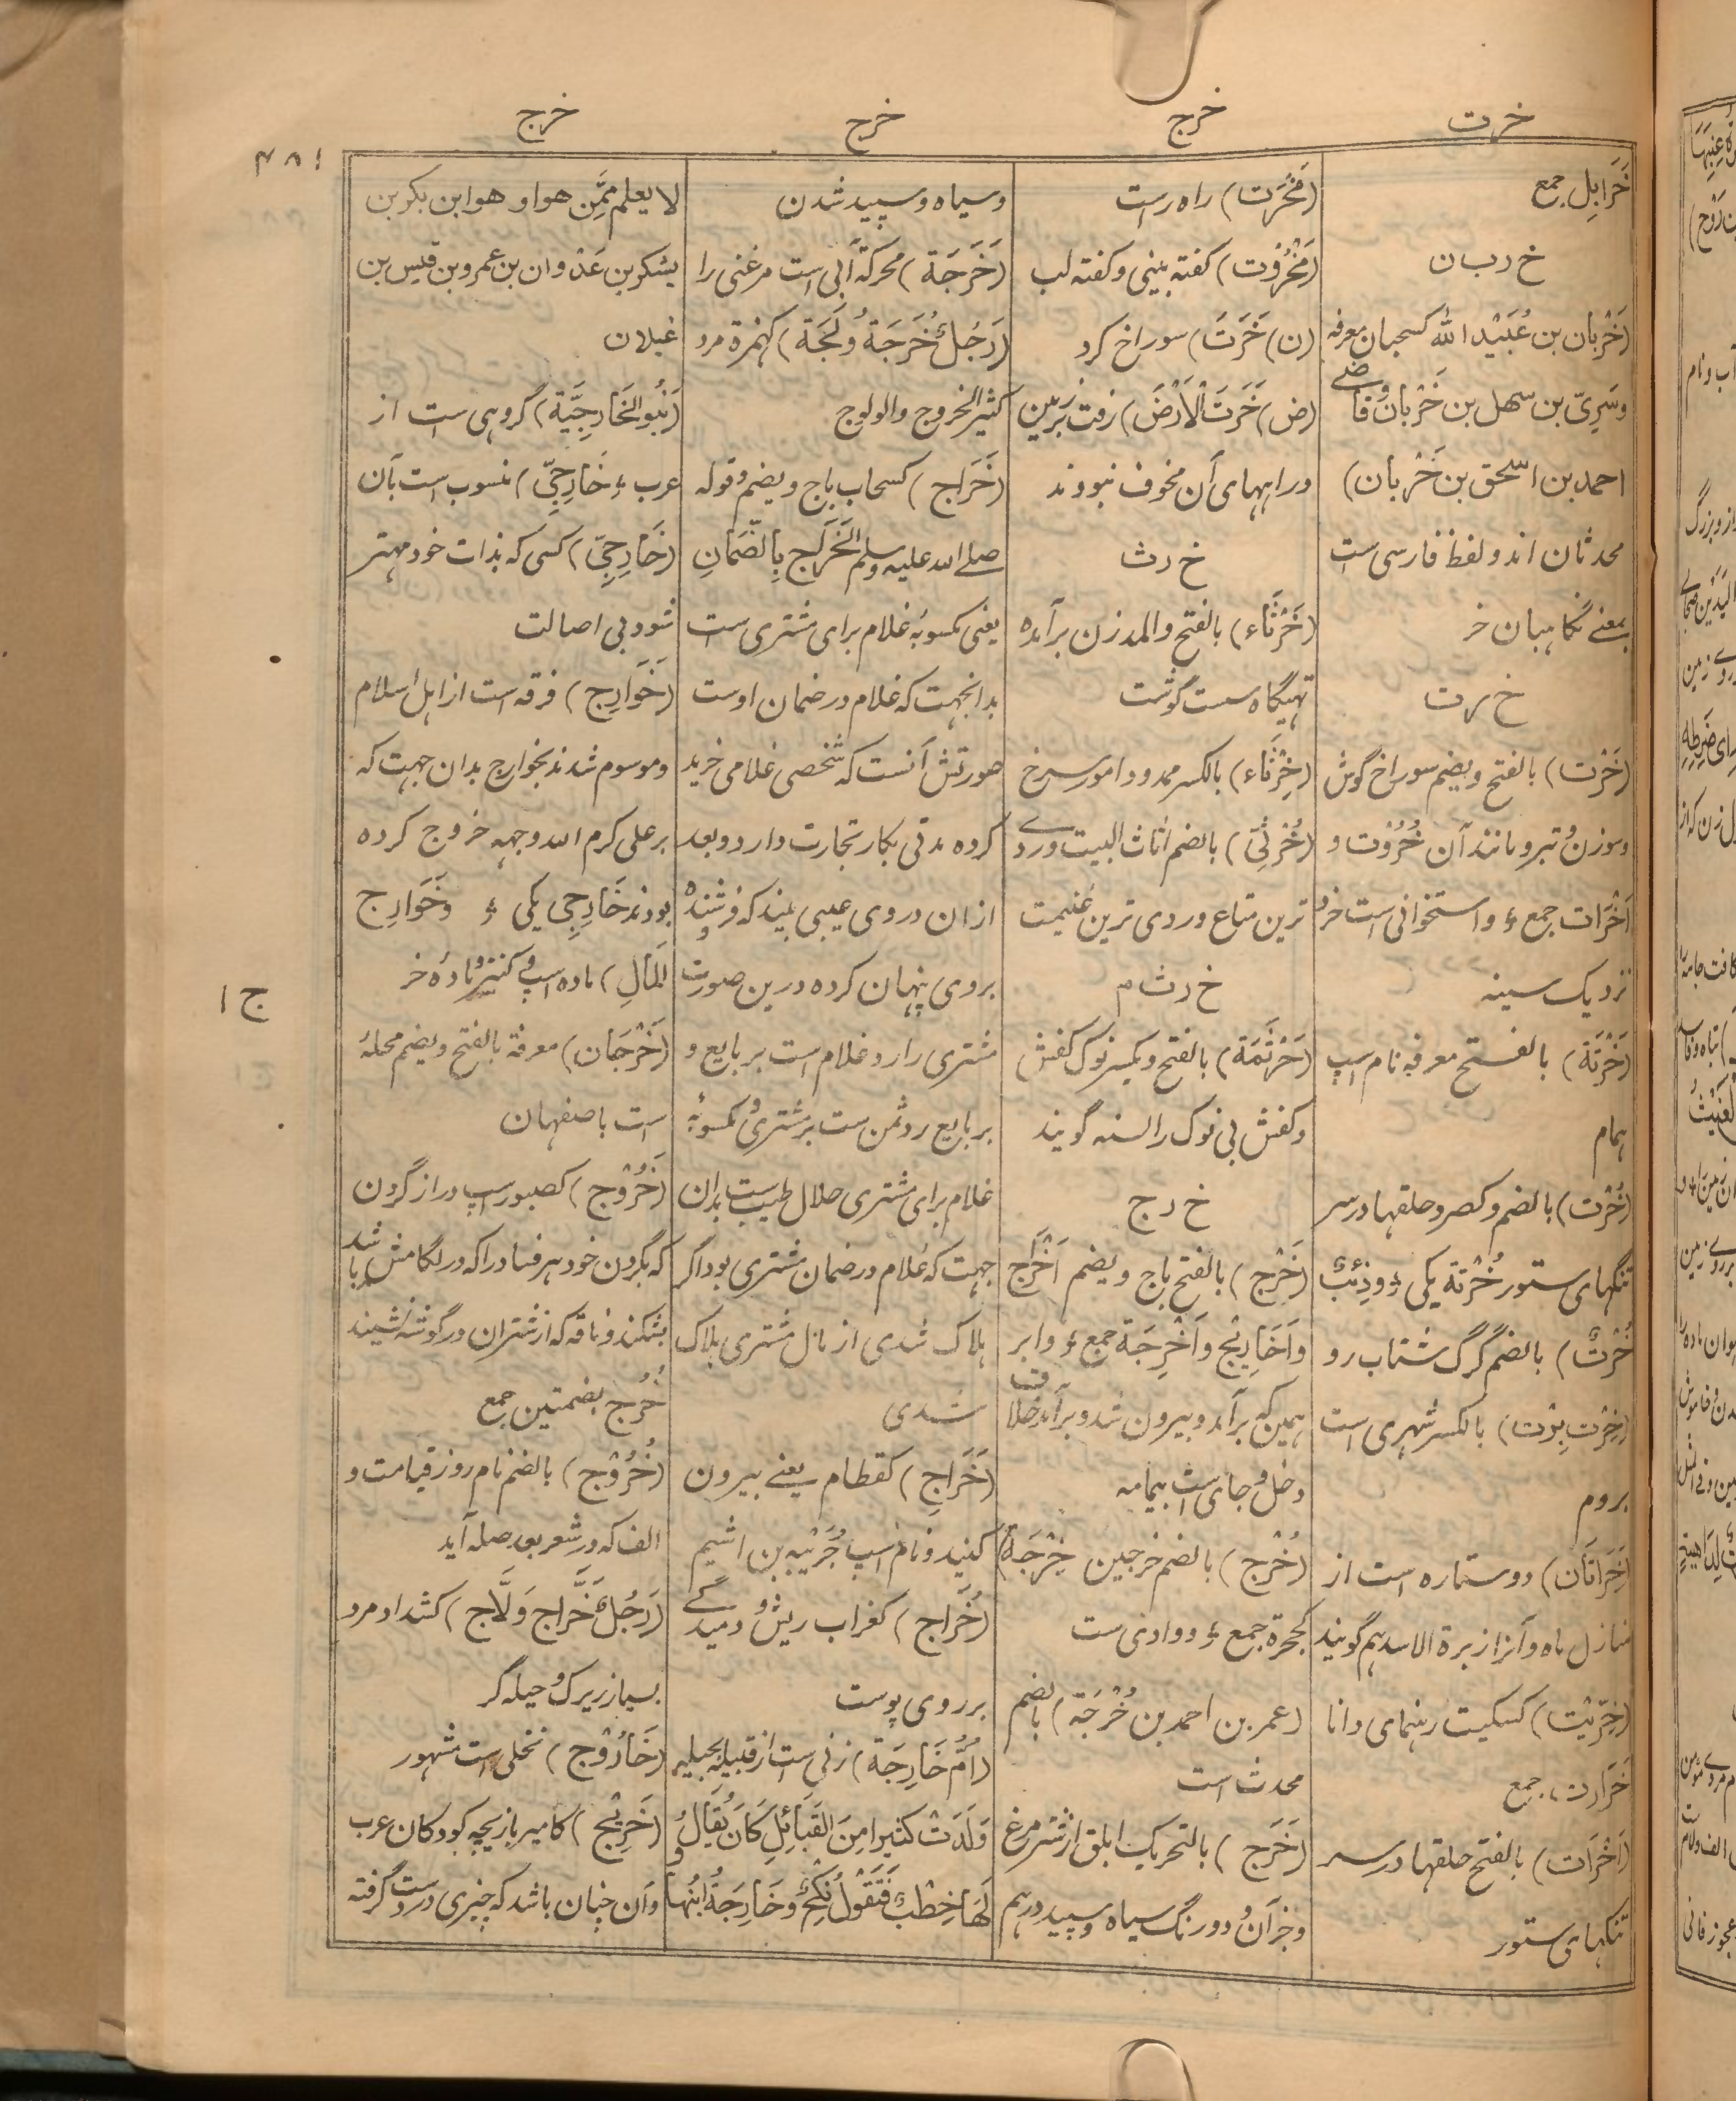 خرت
خرج
خرج
خرج
۴۸۱
خَرَابِل جمع
خ ر ب ا ن
(خَرْبان بن عُبَیْد الله کسحبان معرفه
وسَرِیّ بن سهل بن خَرْبان و قاضے
احمد بن اسحق بن خَرْبان)
محدثان اند و لفظ فارسی ست
بمعنے نگاهبان خر
خ ر ت
(خَرْت) بالفتح و یضم سوراخ گوش
وسوزن و تبر و مانند آن خُرُوْت و
اَخْرَات جمع ؤ و استخوانی ست خرد
نزدیک سینه
(خَرْتَة) بالفتح معرفه نام اسپ
همام
(خُرْت) بالضم و کصرو حلقها در سر
تنگهای ستور خُرْتَة یکی ؤ و ذِئْبٌ
خُرْتٌ) بالضم گرگ شتاب رو
(خِرْت بِرْت) بالکسر شهری است
بروم
(خَرَاتَان) دو ستاره است از
منازل ماه و آنرا زبرة الاسد هم گویند
(خِرِّیْت) کسکیت رهنمای دانا
خَرَارت جمع
(اَخْرَات) بالفتح حلقها در سر
تنگهای ستور
(مَخْرَت) راه راست
(مَخْرُوْت) کفته بینی و کفته لب
(ن) خَرَتَ) سوراخ کرد
(ض) خَرَتَ الْاَرْضَ) رفت بزمین
و راههای آن مخوف نبودند
خ ر ث
(خَرْثَاء) بالفتح والمد زن برآمده
تهیگاه سست گوشت
(خِرْثَاء) بالکسر ممدودا مور سرخ
(خُرْثِیّ) بالضم اثاث البیت و ردے
ترین متاع و ردی ترین غنیمت
خ ر ث م
(خَرْثَمَة) بالفتح و یکسر نوک کفش
و کفش بی نوک را لسنه گویند
خ ر ج
(خَرْج) بالفتح باج و یضم اَخْرُج
وَاَخَارِیْج وَاَخْرِجَة جمع ؤ و ابر
همین که برآمد و بیرون شد و برآمد خلاف
دخل و جای است بیمامه
(خُرْج) بالضم خرجین خِرْجَة
کجحرة جمع ؤ و وادی ست
(عمر بن احمد بن خُرْجَة) بالضم
محدث است
(خَرَج) بالتحریک ابلق از شتر مرغ
و جز آن و دو رنگ سیاه و سپید درهم
و سیاه و سپید شدن
(خَرَجَة) محرکة آبی است مر غنی را
(رَجُلٌ خُرَجَةٌ وُلَجَة) کهمزة مرد
کثیر الخروج والولوج
(خَرَاج) کسحاب باج و یضم و قوله
صلے الله علیه وسلم اَلْخَرَاج بِالضَّمَانِ
یعنی مکسوبه غلام برای مشتری ست
بدانجهت که غلام در ضمان اوست
صورتش آنست که شخصی غلامی خرید
کرده مدتی بکار تجارت دارد و بعد
ازان در وی عیبی بیند که فروشنده
بر وی پنهان کرده درین صورت
مشتری را رد غلام است بر بایع و
بر بایع رد ثمن ست بر مشتری و مکسوبه
غلام برای مشتری حلال طیب ست بدان
جهت که غلام در ضمان مشتری بود اگر
هلاک شدی از مال مشتری هلاک
شدی
(خَرَاجِ) کقطام یعنے بیرون
کنید و نام اسپ جُرَیْبه بن اشیم
(خُرَاج) کغراب ریش و دمیدگے
بر روی پوست
(اُمُّ خَارِجَة) زنی ست از قبیله بجیله
وَلَدَتْ کثیرا مِنَ القَبَائِلِ کَانَ یُقَالُ
لَهَا خِطْبٌ فَتَقُوْلُ نِکْحٌ وَ خَارِجَةُ ابْنُهَا و
لا یعلم مِمَّن هو او هو ابن بکر بن
یشکر بن عَدْوان بن عمرو بن قیس بن
غیلان
(بَنُو الخَارِجِیَّة) گروهی ست از
عرب ؤ خَارِجِیّ) منسوب است بآن
(خَارِجِیّ) کسی که بذات خود مهتر
شود بی اصالت
(خَوَارِج) فرقه است از اهل اسلام
و موسوم شدند بخوارج بدان جهت که
بر علی کرم الله وجهه خروج کرده
بودند خَارِجِی یکی ؤ و خَوَارِج
المَالِ) ماده اسپ و کنیز و ماده خر
(خَرْجَان) معرفة بالفتح و یضم محله
است باصفهان
(خَرُوْج) کصبور اسپ دراز گردن
که بگردن خود هر فسار را که در لگامش باشد
بشکند و ناقه که از شتران در گوشه نشیند
خُرُج بضمتین جمع
(خُرُوْج) بالضم نام روز قیامت و
الف که در شعر بعد صله آید
(رَجُلٌ خَرَّاج وَلَّاج) کشداد مرد
بسیار زیرک و حیله گر
(خَارُوْج) نخلی است مشهور
(خَرِیْج) کامیر بازیچه کودکان عرب
و آن چنان باشد که چیزی در دست گرفته
ج ۱